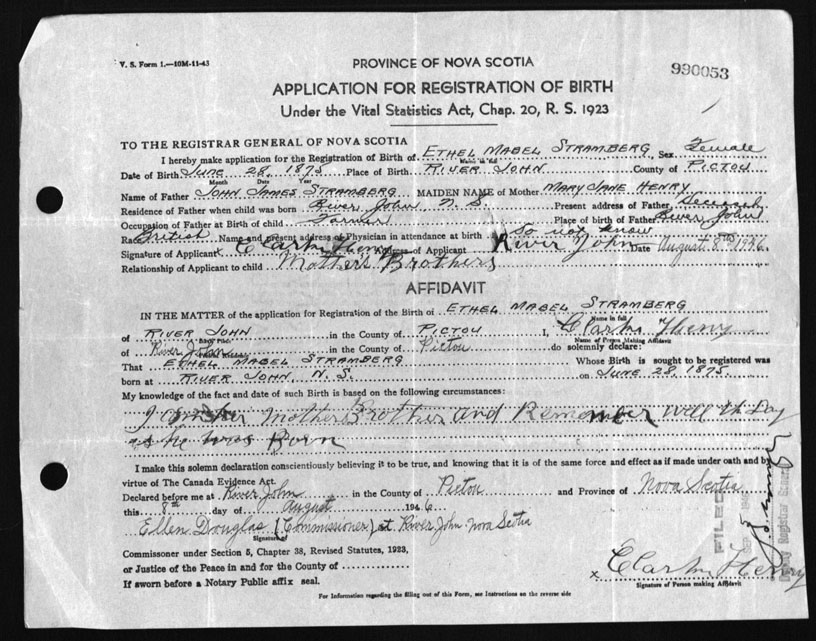 V. S. Form 1.—10M-11-43
PROVINCE OF NOVA SCOTIA
990053
APPLICATION FOR REGISTRATION OF BIRTH
Under the Vital Statistics Act, Chap. 20, R. S. 1923
TO THE REGISTRAR GENERAL OF NOVA SCOTIA
I hereby make application for the Registration of Birth of ETHEL MABEL STRAMBERG, Sex Female
Name in full
Date of Birth JUNE 28, 1875 Place of Birth RIVER JOHN County of PICTOU
Month Date Year
Name of Father JOHN JAMES STRAMBERG MAIDEN NAME of Mother MARY JANE HENRY
Residence of Father when child was born River John N. S. Present address of Father Deceased
Occupation of Father at Birth of child Farmer Place of birth of Father River John
Race British Name and present address of Physician in attendance at birth Do not know
Signature of Applicant Clark Henry Address of Applicant River John Date August 8th 1946
Relationship of Applicant to child Mothers Brothers
AFFIDAVIT
IN THE MATTER of the application for Registration of the Birth of ETHEL MABEL STRAMBERG
Name in full
of RIVER JOHN in the County of PICTOU I, Clark Henry
Name of Person Making Affidavit
of River John in the County of Pictou do solemnly declare:
That ETHEL MABEL STRAMBERG Whose Birth is sought to be registered was
born at RIVER JOHN N. S. on JUNE 28, 1875.
My knowledge of the fact and date of such Birth is based on the following circumstances:
I am her Mother Brother and Remember well the Day
he was Born
I make this solemn declaration conscientiously believing it to be true, and knowing that it is of the same force and effect as if made under oath and by
virtue of The Canada Evidence Act.
Declared before me at River John in the County of Pictou and Province of Nova Scotia
this 8th day of August 1946
Ellen Douglas (Commissioner) at River John Nova Scotia
Signature of
Commissioner under Section 5, Chapter 38, Revised Statutes, 1923,
or Justice of the Peace in and for the County of
If sworn before a Notary Public affix seal.
x Clark Henry
Signature of Person making Affidavit
For Information regarding the filling out of this Form, see Instructions on the reverse side
FILED
Deputy Registrar General